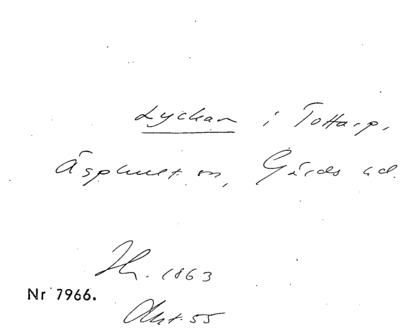 Lyckan i Tottarp,
Äsphult sn, Gärds hd.
Hr. 1863
Nr 7966.
Akt. 55